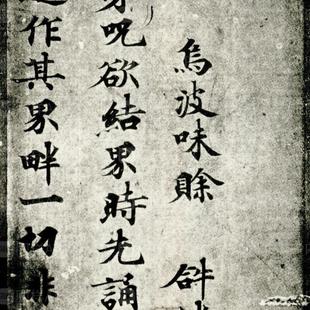 烏波味賖
呪欲結界時先誦
作其界畔一切非